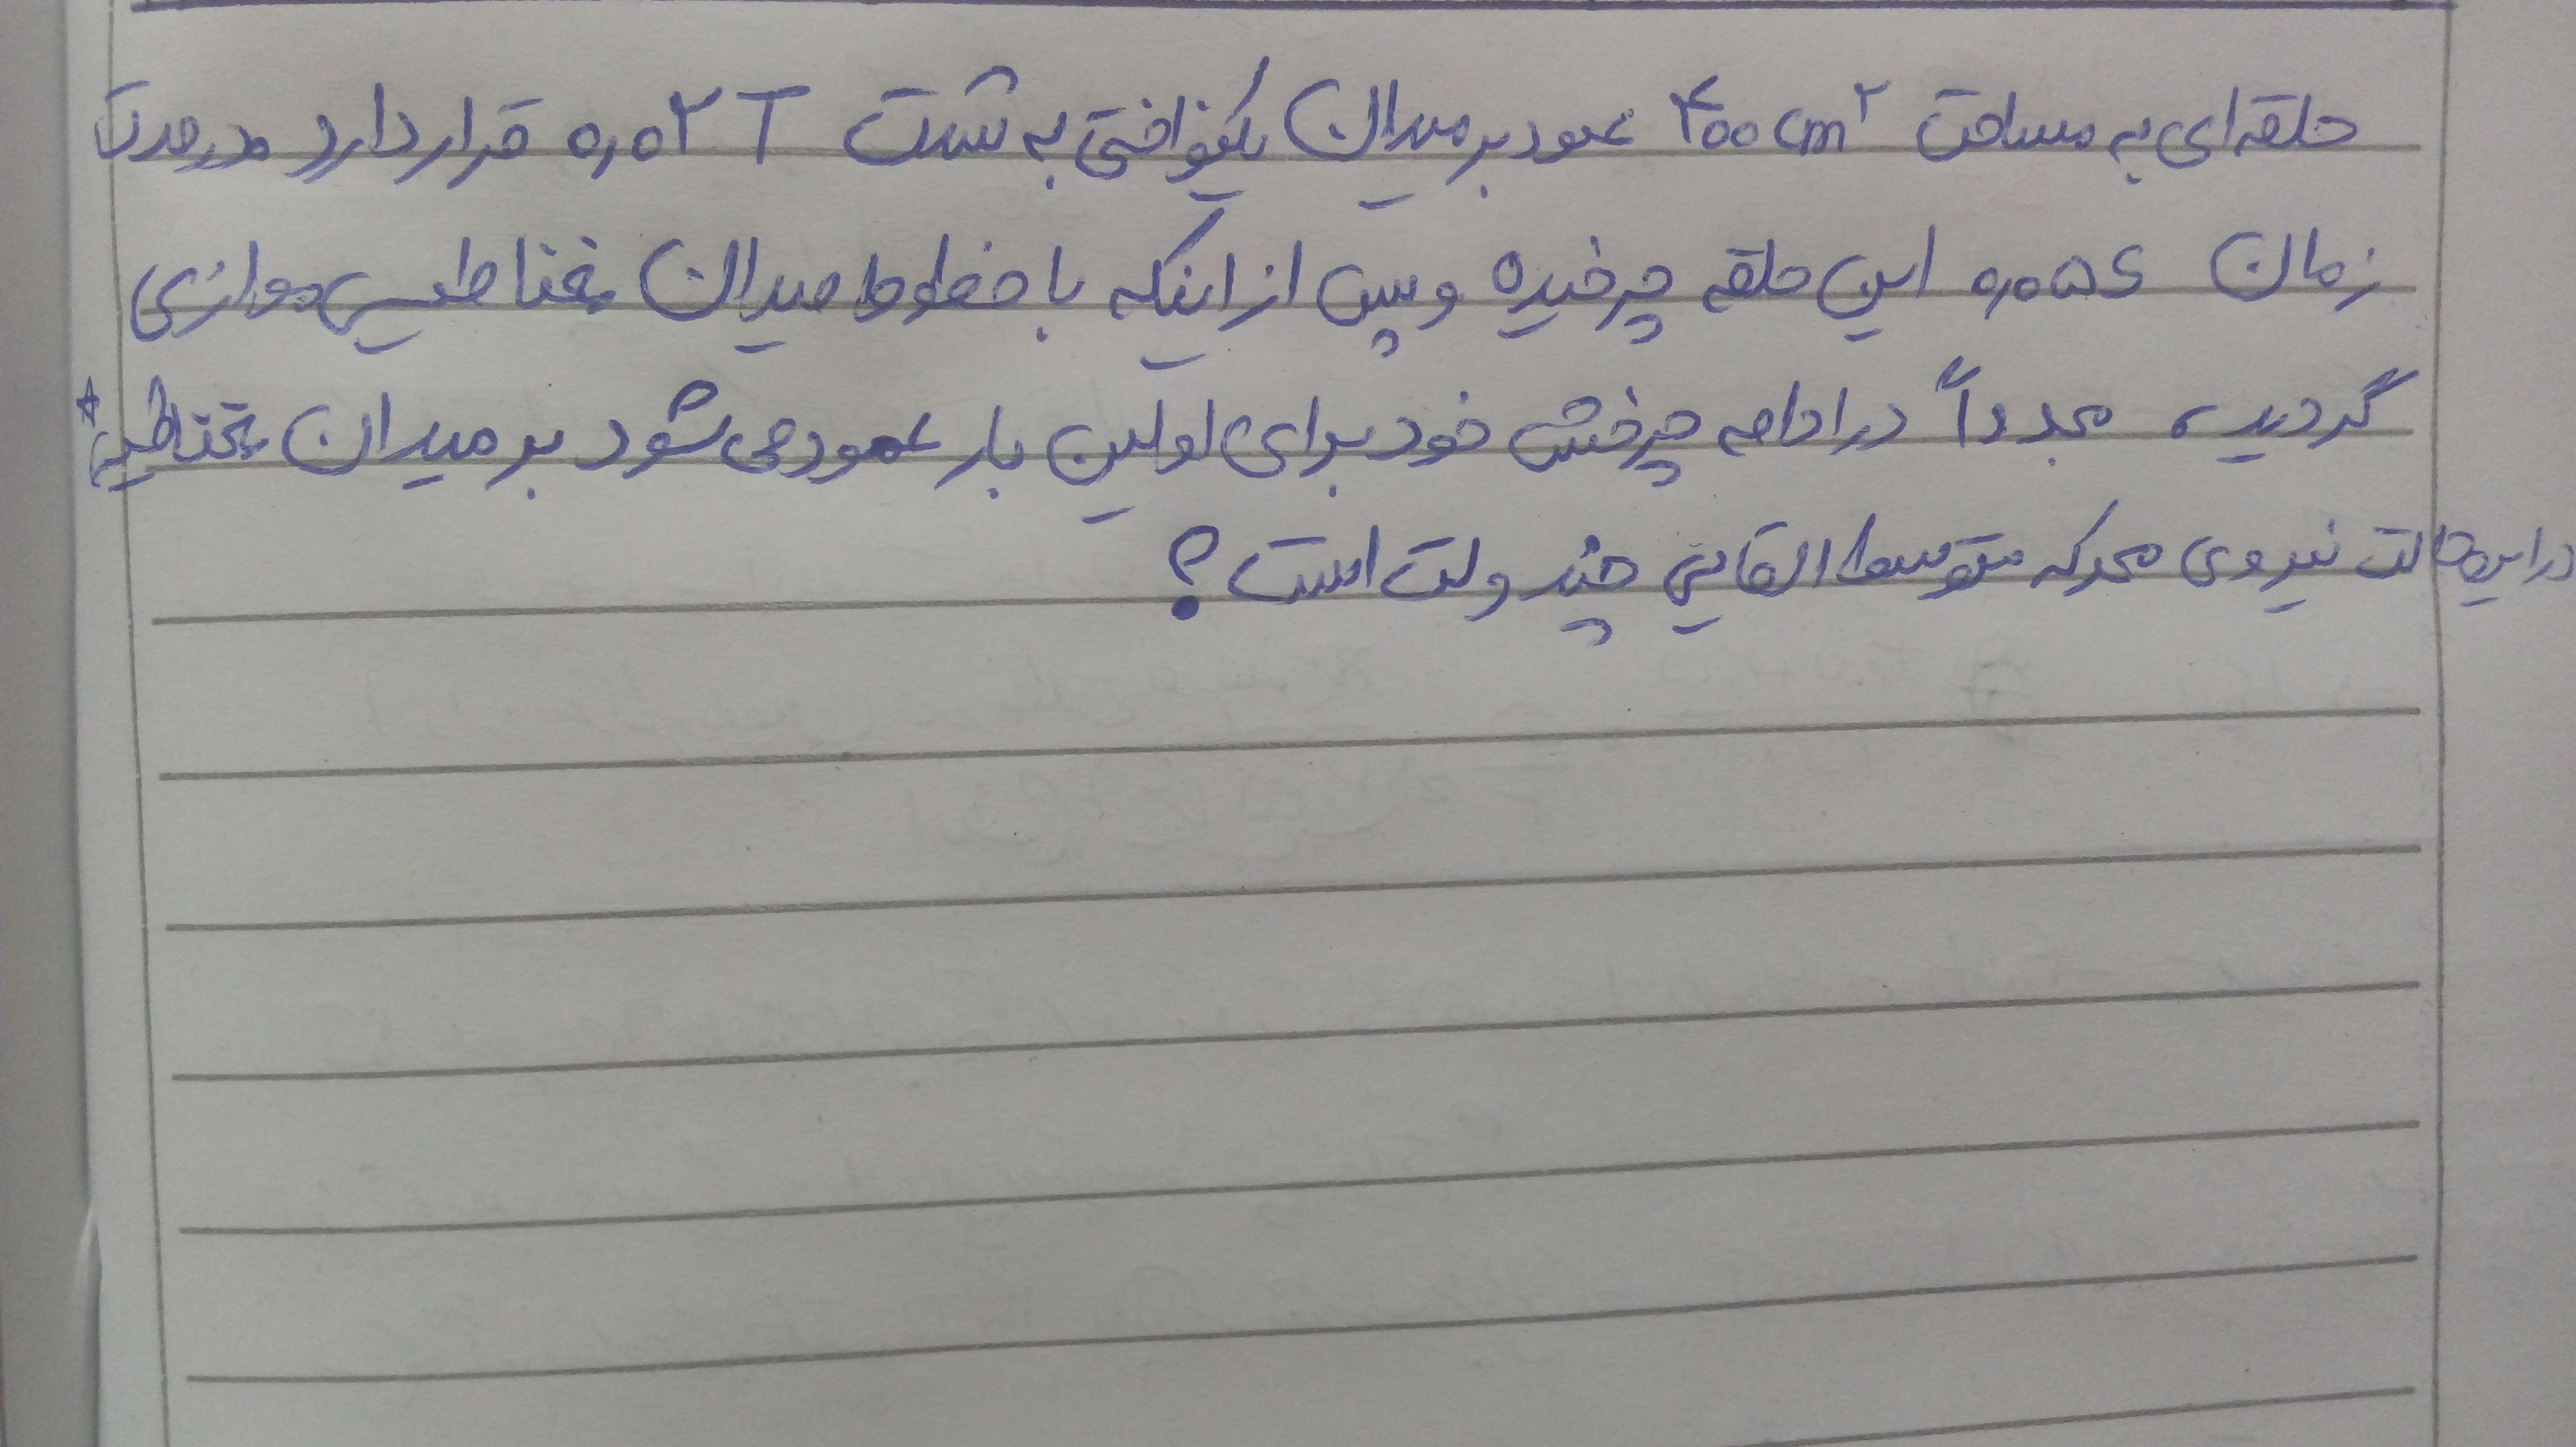 حلقه‌ای به مساحت ۴۰۰ cm² عمود بر میدان یکنواختی به شدت ۰٫۰۲ T قرار دارد در مدت
زمان ۰٫۰۵ s این حلقه چرخیده و پس از اینکه با خطوط میدان مغناطیسی موازی
گردید، مجدداً در ادامه چرخش خود برای اولین بار عمود می‌شود بر میدان مغناطیسی*
در این حالت نیروی محرکه متوسط القایی چند ولت است؟